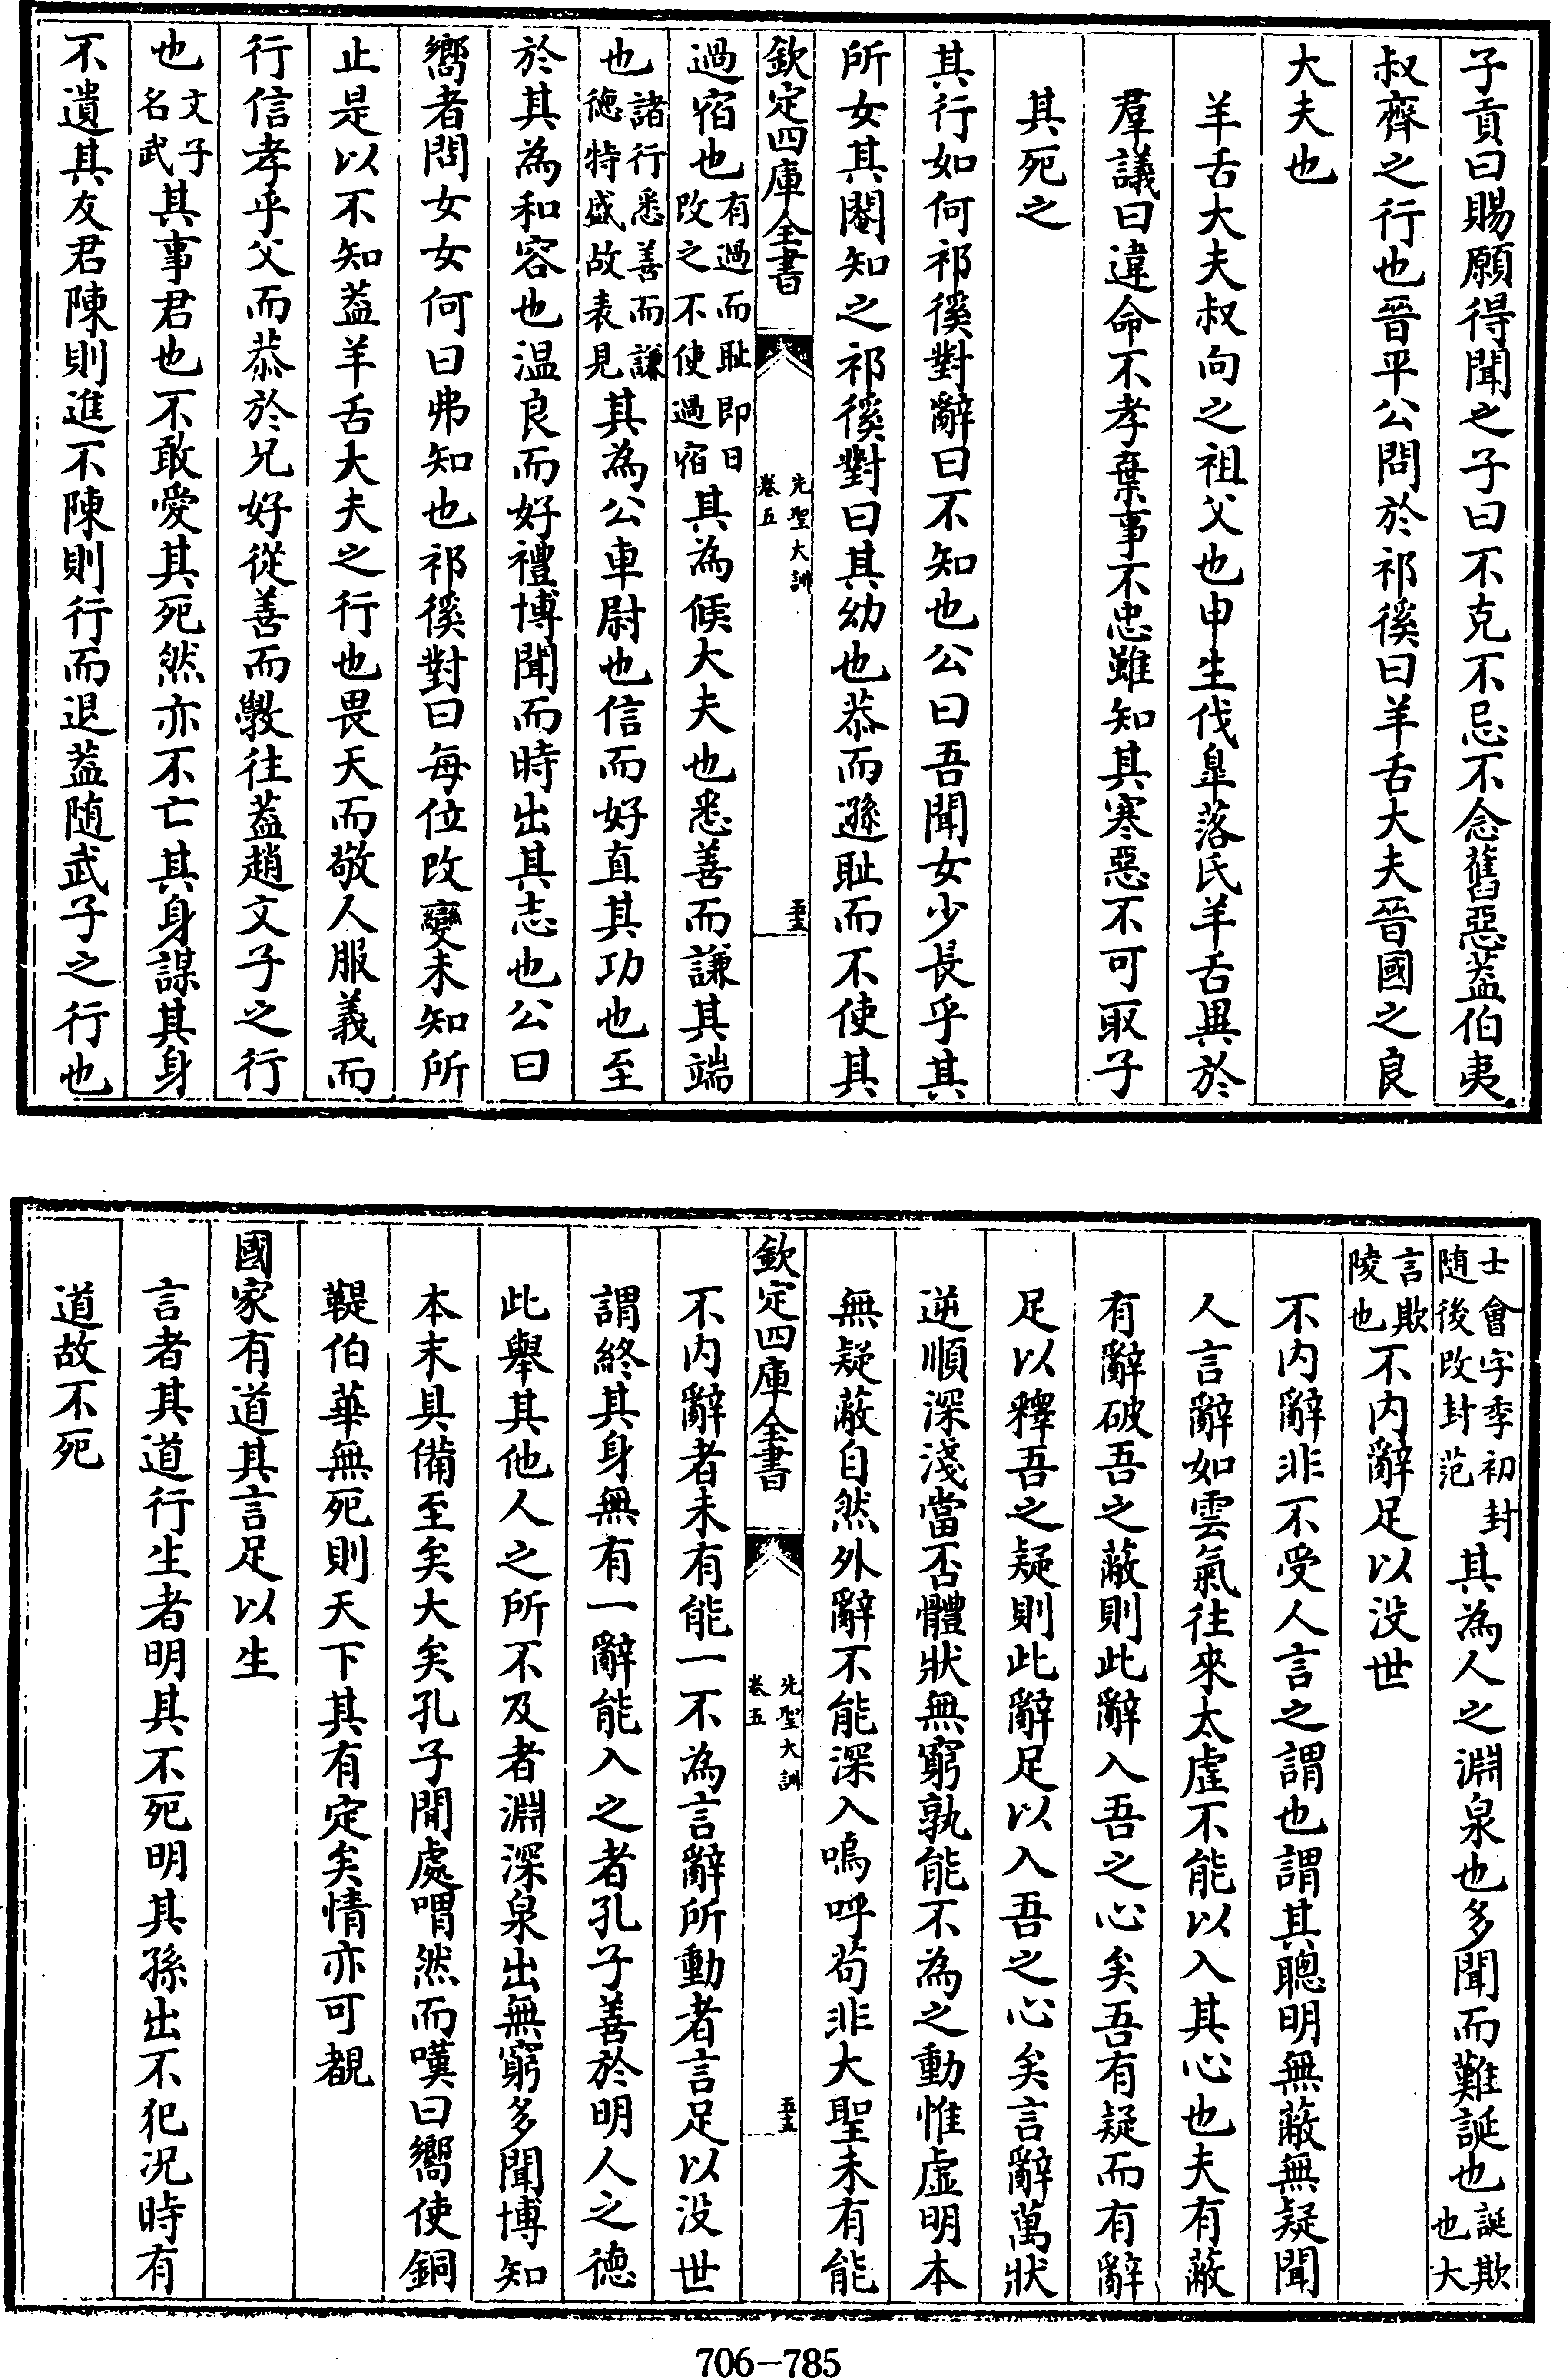 子貢曰賜願得聞之子曰不克不忌不念舊惡葢伯夷
叔齊之行也晉平公問於祁徯曰羊舌大夫晉國之良
大夫也
羊舌大夫叔向之祖父也申生伐臯落氏羊舌與於
羣議曰違命不孝棄事不忠雖知其寒惡不可取子
其死之
其行如何祁徯對辭曰不知也公曰吾聞女少長乎其
所女其閹知之祁徯對曰其幼也恭而遜耻而不使其
欽定四庫全書
先聖大訓
卷五
過宿也有過而耻即日改之不使過宿其為候大夫也悉善而謙其端
也諸行悉善而謙徳特盛故表見其為公車尉也信而好直其功也至
於其為和容也温良而好禮博聞而時出其志也公曰
嚮者問女女何曰弗知也祁徯對曰每位改變未知所
止是以不知葢羊舌大夫之行也畏天而敬人服義而
行信孝乎父而恭於兄好從善而斆往葢趙文子之行
也文子名武其事君也不敢愛其死然亦不亡其身謀其身
不遺其友君陳則進不陳則行而退葢随武子之行也
士會字季初封随後改封范其為人之淵泉也多聞而難誕也誕欺也大
言欺陵也不内辭足以没世
不内辭非不受人言之謂也謂其聰明無蔽無疑聞
人言辭如雲氣往來太虛不能以入其心也夫有蔽
有辭破吾之蔽則此辭入吾之心矣吾有疑而有辭
足以釋吾之疑則此辭足以入吾之心矣言辭萬狀
逆順深淺當否體狀無窮孰能不為之動惟虛明本
無疑蔽自然外辭不能深入嗚呼苟非大聖未有能
欽定四庫全書
先聖大訓
卷五
不内辭者未有能一不為言辭所動者言足以没世
謂終其身無有一辭能入之者孔子善於明人之德
此舉其他人之所不及者淵深泉出無窮多聞博知
本末具備至矣大矣孔子閒處喟然而嘆曰嚮使銅
鞮伯華無死則天下其有定矣情亦可覩
國家有道其言足以生
言者其道行生者明其不死明其孫出不犯況時有
道故不死
706-785